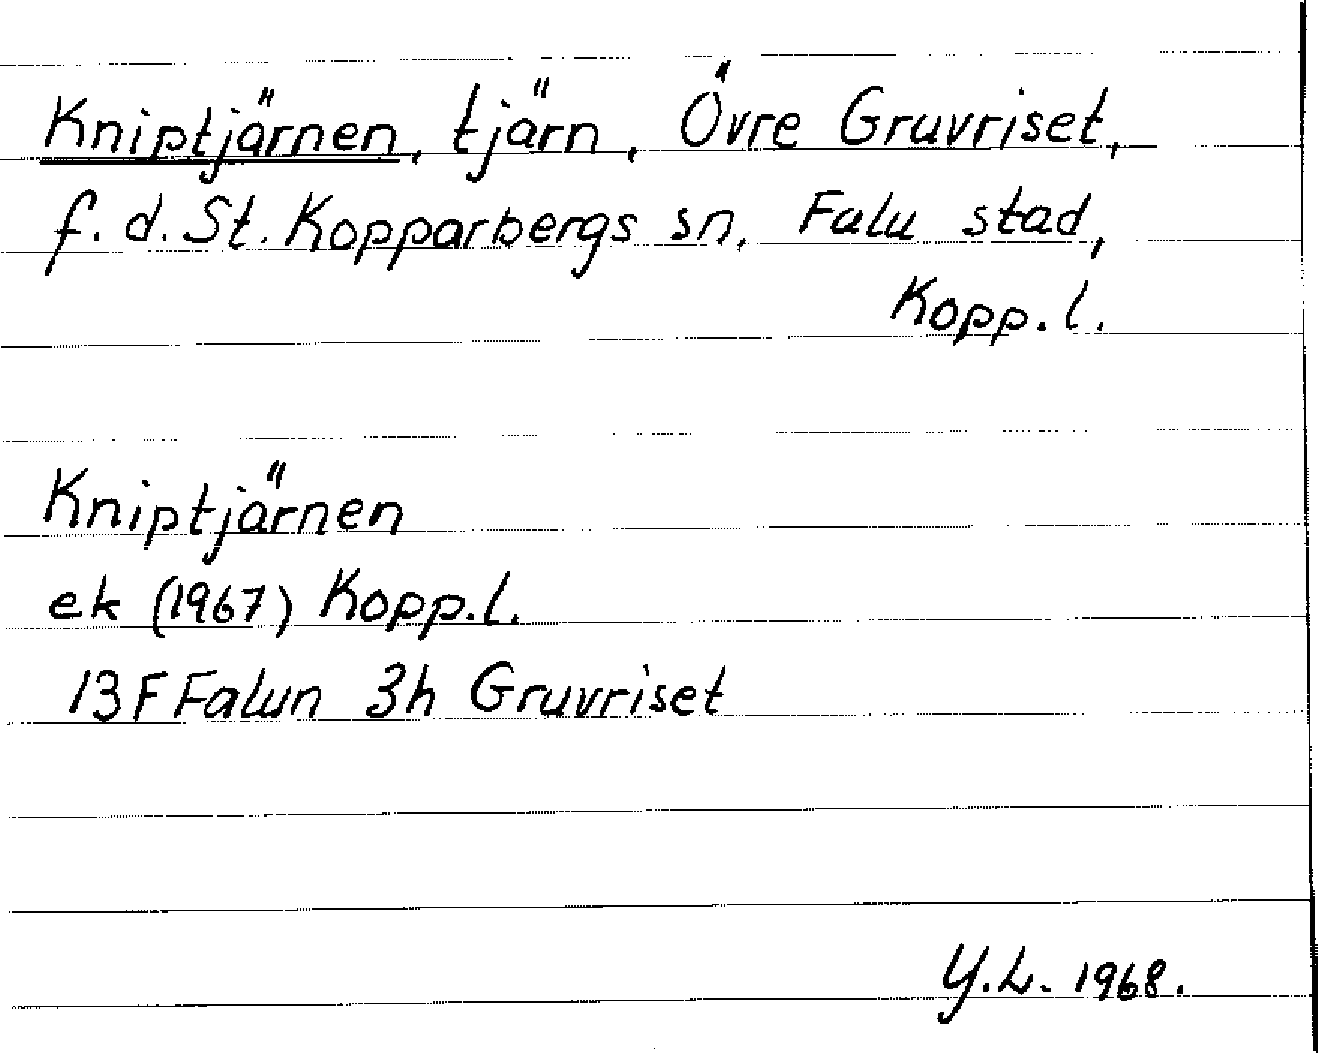 Kniptjärnen, tjärn, Övre Gruvriset,
f.d. St. Kopparbergs sn, Falu stad,
Kopp.l.
Kniptjärnen
ek (1967) Kopp.l.
13F Falun 3h Gruvriset
Y.L. 1968.